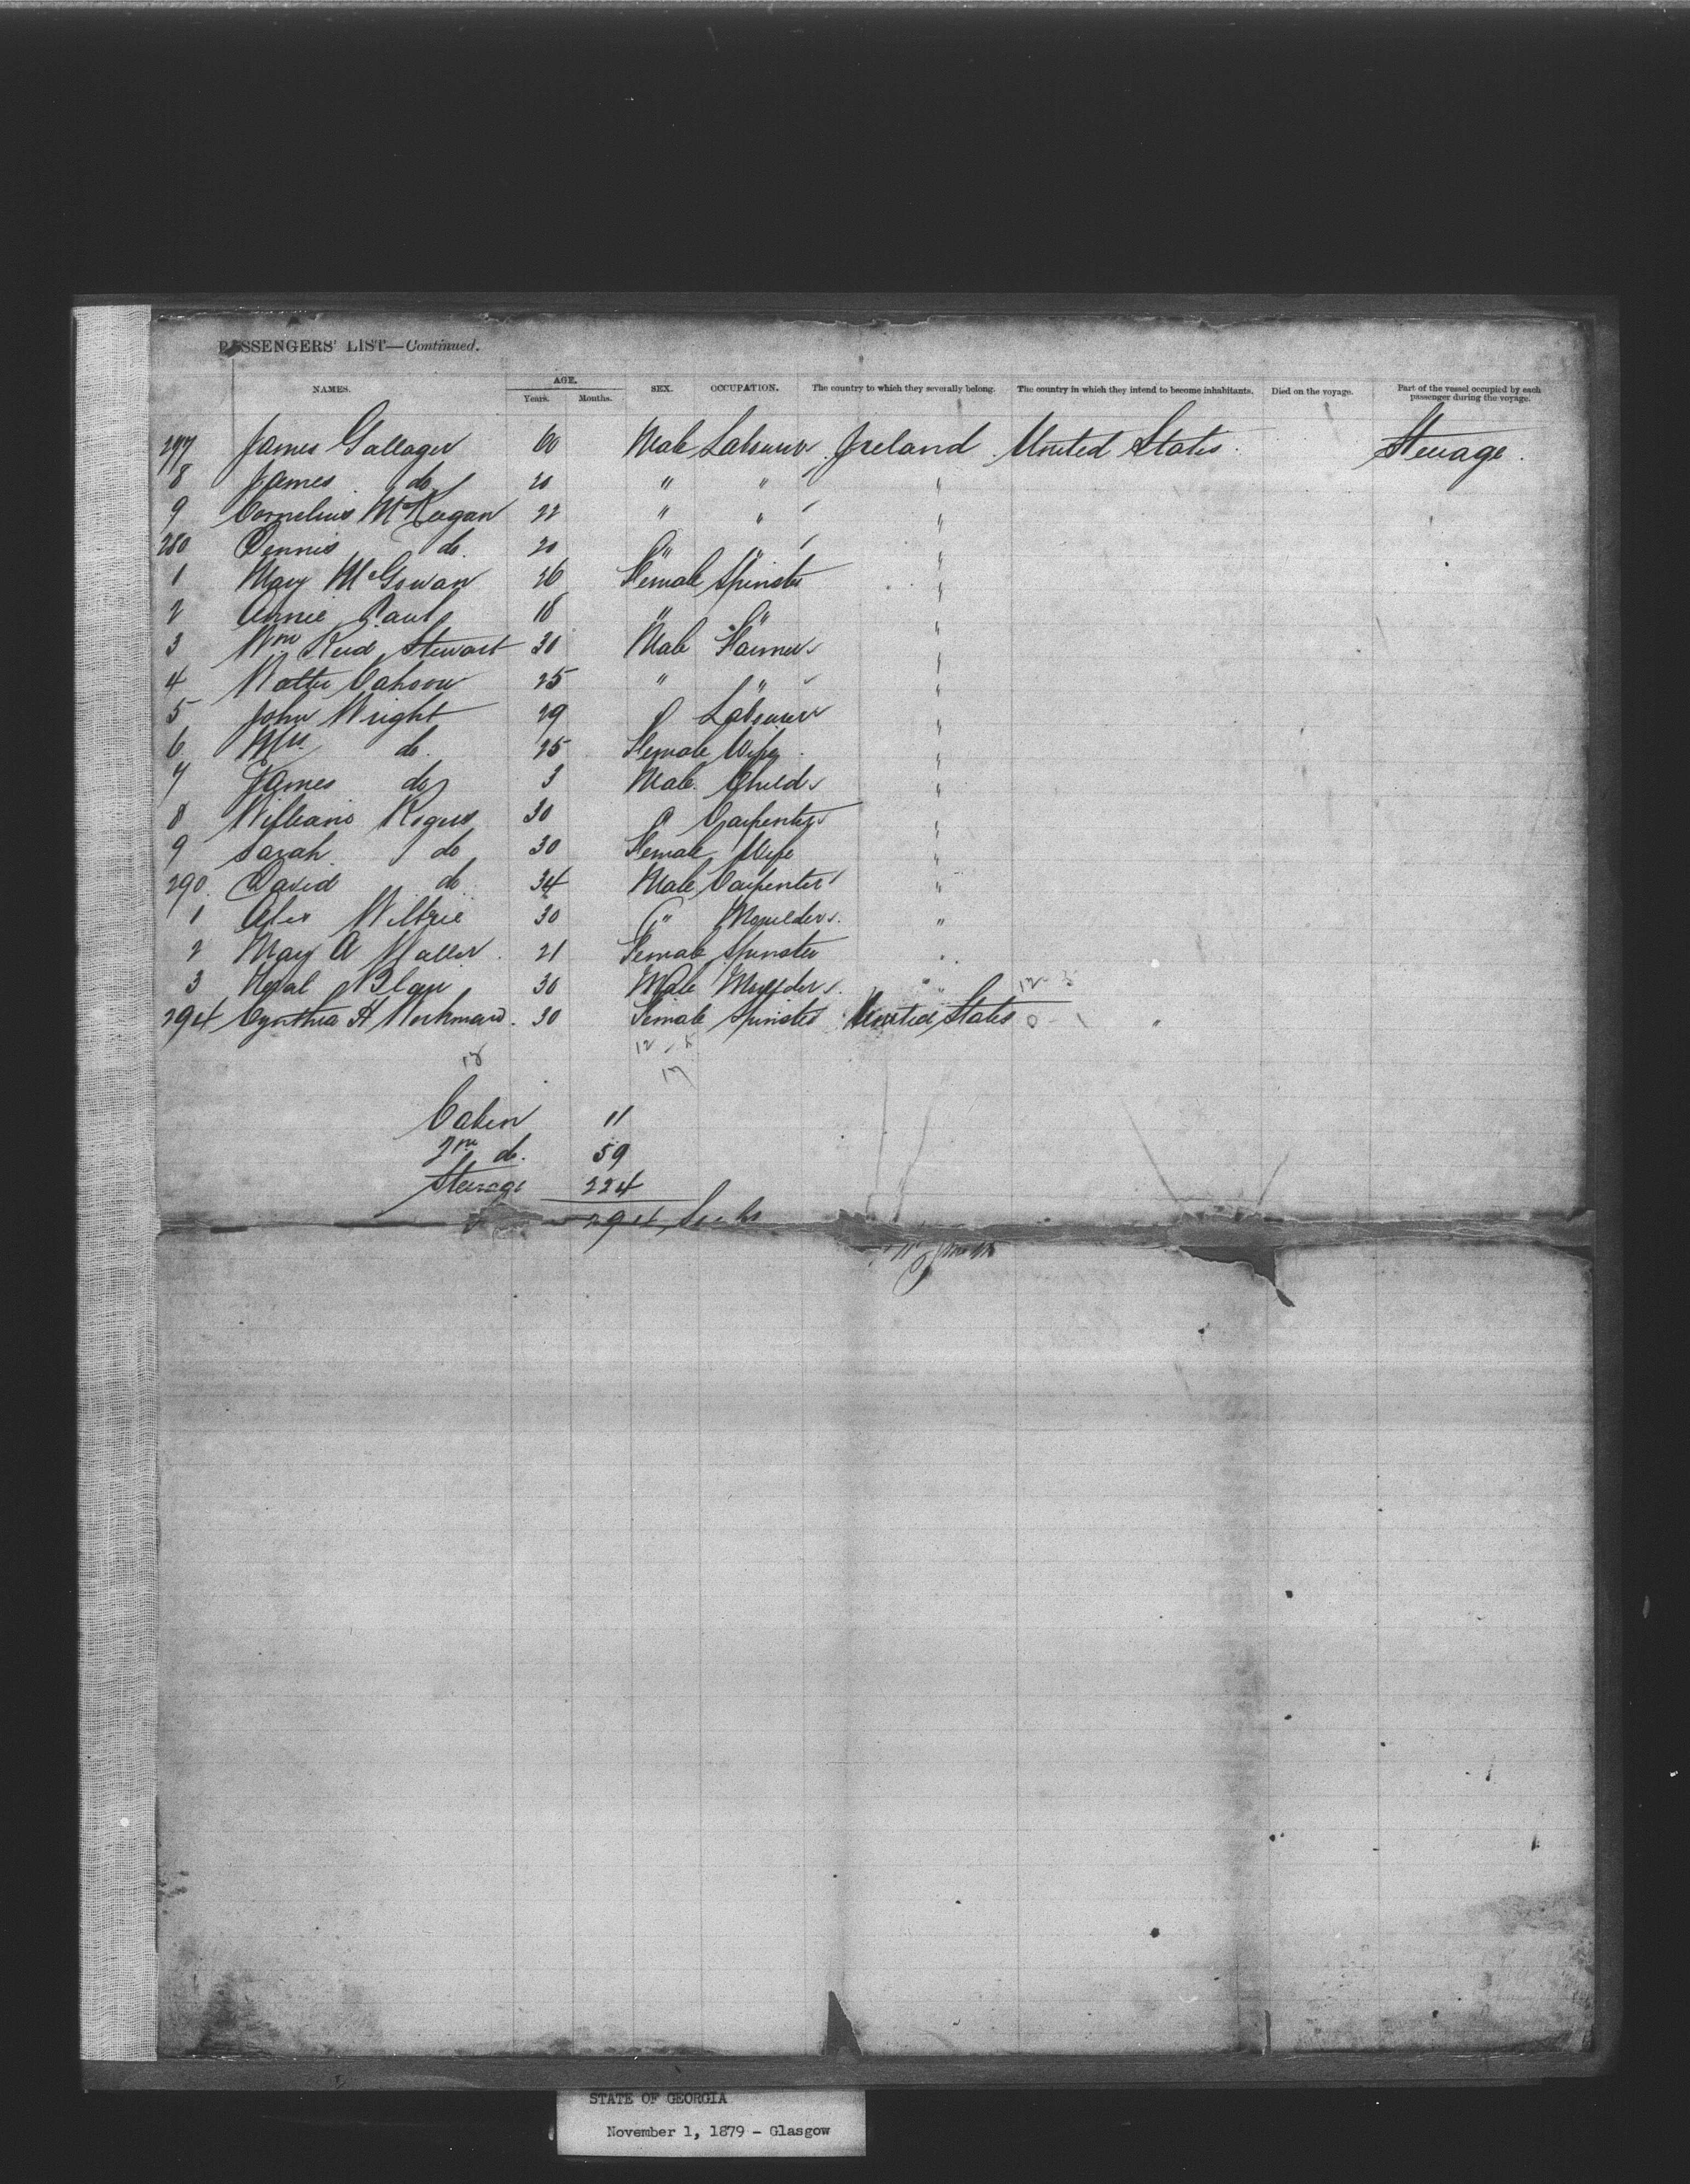 PASSENGERS' LIST—Continued.
NAMES. AGE. Years. Months. SEX. OCCUPATION. The country to which they severally belong. The country in which they intend to become inhabitants. Died on the voyage. Part of the vessel occupied by each passenger during the voyage.
277 James Gallager 60 Male Labourer Ireland United States Steerage.
8 James do 20 " " "
9 Cornelius McKeegan 22 " " "
280 Dennis do. 20 " " "
1 Mary McGowan 26 Female Spinster "
2 Annie Paul 18 " " "
3 Wm Reid Stewart 30 Male Farmer "
4 Walter Cahoon 25 " " "
5 John Wright 29 " Labourer "
6 Mrs do. 25 Female Wife "
7 James do 3 Male Child "
8 William Rogers 30 " Carpenter "
9 Sarah do 30 Female Wife "
290 David do 34 Male Carpenter "
1 Alex 30 " Moulder "
2 Mary A 21 Female Spinster "
3 30 Male Moulder "
294 Cynthia A Workman 30 Female Spinster United States "
18
17
Cabin 11
2nd do. 59
Steerage 224
294
STATE OF GEORGIA
November 1, 1879 - Glasgow